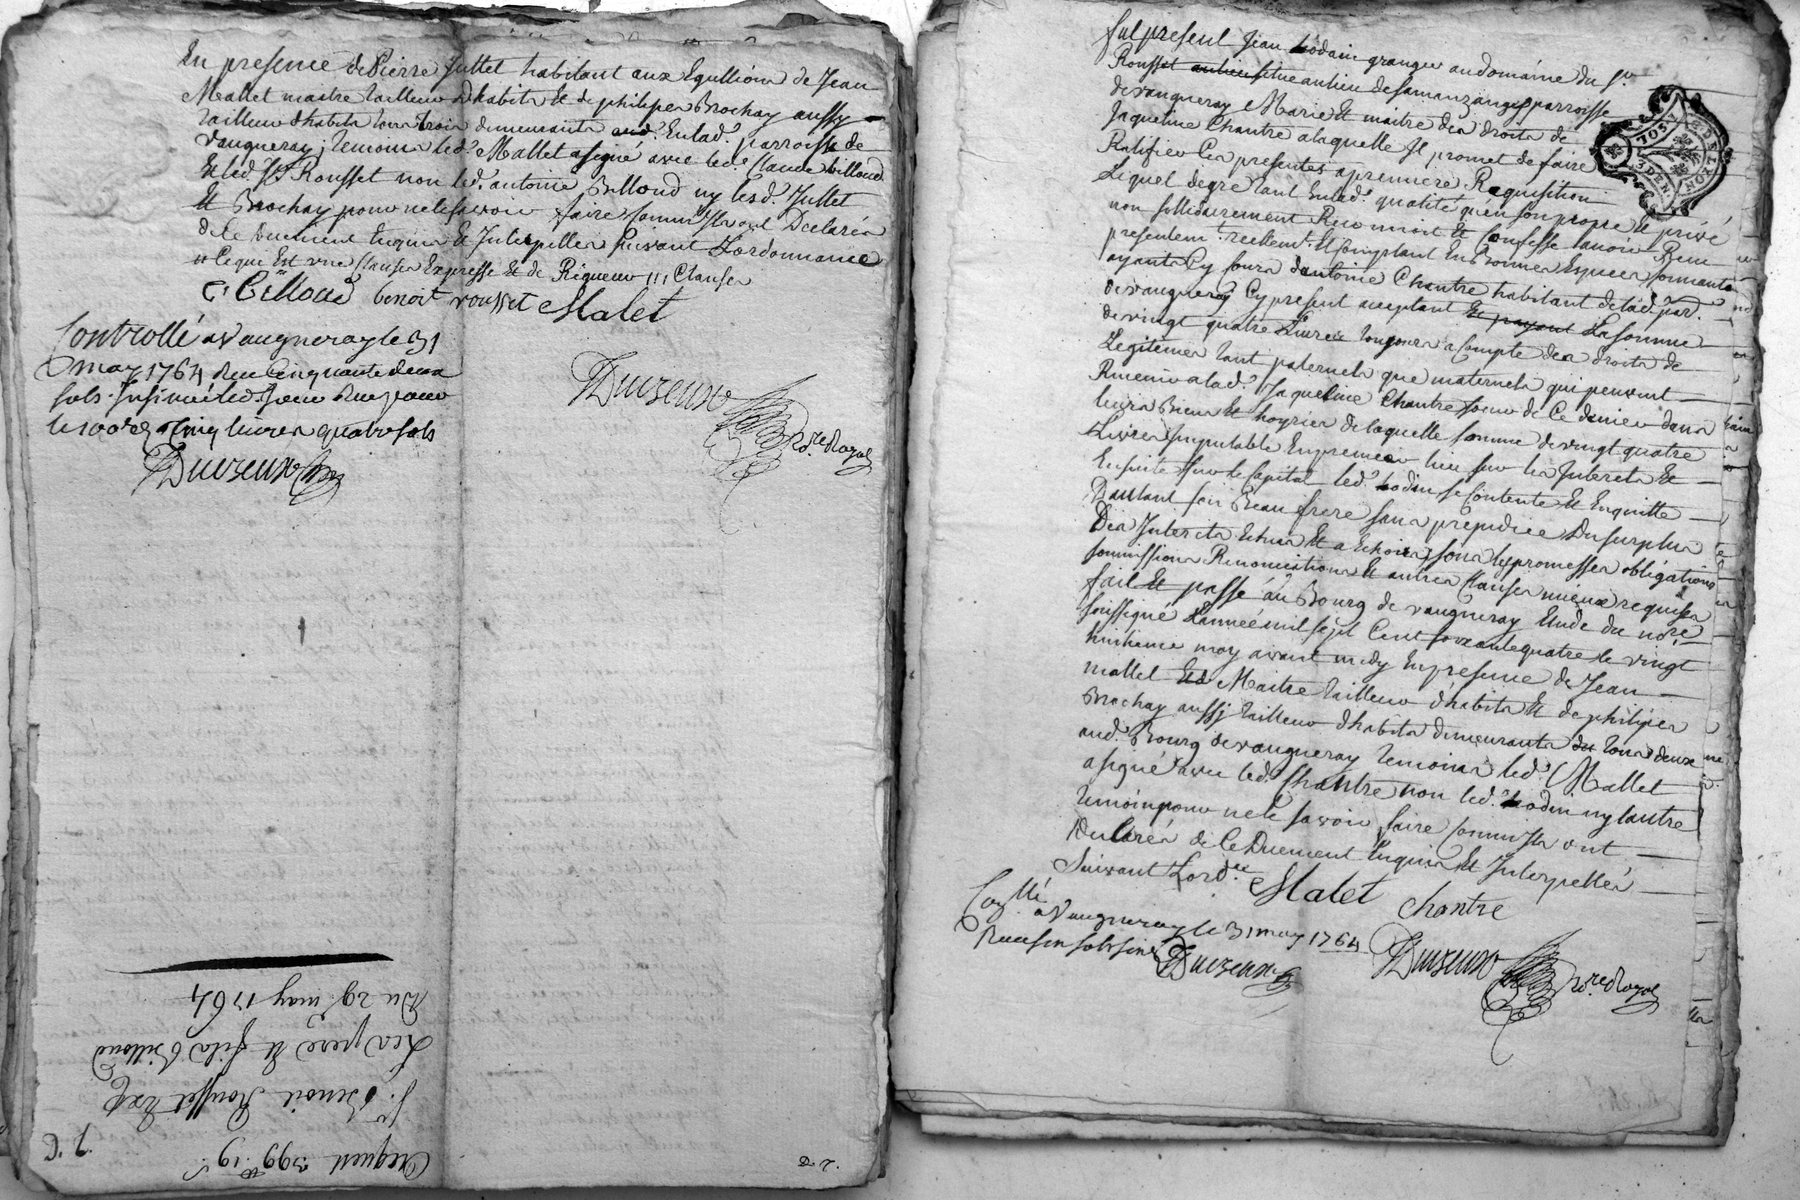 En presence de Pierre Juttet habitant aux Equllion de Jean
Mallet maitre tailleur dhabits Et de philiper Brochay aussy
tailleur dhabits tous trois demeurants Enlad.e parroisse de
Vaugneray temoins led.t Mallet a signé avec led.t Claude billoud
Et led. Sr Rousset non led.t antoine Billoud ny lesd.ts Juttet
Et Brochay pour ne le savoir faire comm'Ils ont Declarés
de Ce Duement Enquis Et Interpellés suivant Lordonnance
Ce que Est une Clauses Expresse Et de Rigueur /// Clauses
C: Billoud benoit rousset Malet
Controllé a Vaugneray le 31
may 1764 Reçu Cinquante deux
sols Insinué led. Jour Reçu pour
le 100e d. Cinq livres quatre sols
Duvzeux
Duvzeux
No.re Royal
Du 29 may 1764
Les pere Et fils Billoud
Sr. Benoit Rousset Exp
Acquest 399 lt 19 s
7. C.
2. D
fut present Jean Lodain granger au domaine du Sr.
Rousset au lieu situé au lieu de Samanzange parroisse
de vaugneray Marié Et maitre des droits de
Jaqueline Chantre alaquelle Il promet de faire
Ratifier Ces presentes a premiere Requisition
Lequel degre tant Enlad.e qualité qu'en son propre Et privé
non sollidairement Reconnoit Et Confesse avoir Reçu
presentem.t reellem.t Et Comptant En Bonnes Espèces sonnants
ayants Cy cours d'antoine Chantre habitant delad. par.
de vaugneray Cy present acceptant Et payant La somme
de vingt quatre Livres toujours a Compte des droits de
Legitimes tant paternels que maternels qui peuvent
Revenir alad.e Jaqueline Chantre soeur de Ce dernier dans
leurs Biens Et hoyries de laquelle somme de vingt quatre
Livres Imputable En premier lieu sur les Interets Et
En suite sur le Capital led.t Lodin se Contente Et En quitte
D'autant son Beau frere sans prejudice Du surplus
Des Interets Echus Et a Echoirs sous les promesses obligations
soumissions Renonciations Et autres Clauses mieux requises
fait Et passé au Bourg de vaugneray Etude du no.re
soussigné L'année mil sept Cent soixante quatre le vingt
huitieme may avant midy En presence de Jean
mallet Maitre tailleur d'habits Et de philiper
Brochay aussj tailleur dhabits demeurants tous deux
aud. Bourg de vaugneray temoins led.t Mallet
a signé avec led.t Chantre non led.t Lodin ny lautre
temoin pour ne le savoir faire comm'Ils ont
Declarés de Ce Duement Enquis Et Interpellés
Suivant Lord.ce
Malet Chantre
Con.llé
a Vaugneray le 31 may 1764
Reçu six sols six
Duvzeux
Duvzeux
No.re Royal